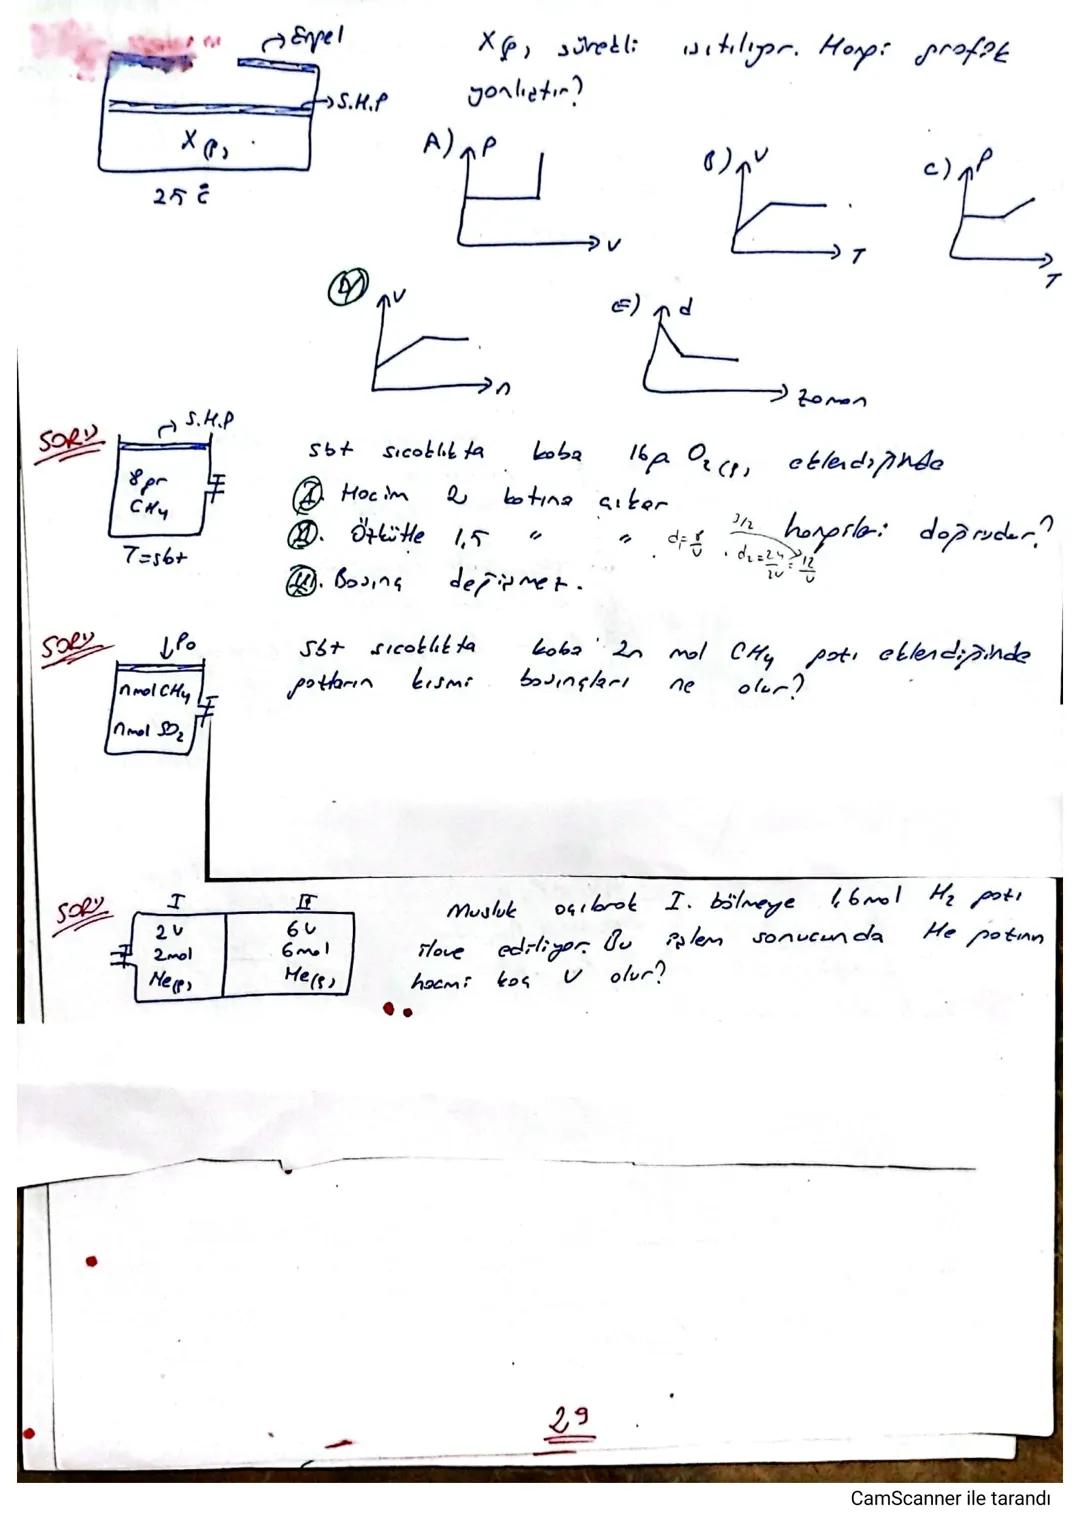 Engel
S.H.P
X(g)
25 °C
X(g) sürekli ısıtılıyor. Hangi grafik
yanlıştır?
A) P V
B) V T
C) P T
D) V n
E) d Zaman
SORU
S.H.P
8 gr
CH4
T=sbt
sbt sıcaklıkta kaba 16g O2(g) eklendiğinde
I. Hacim 2 katına çıkar
II. Özkütle 1,5 " " d1=8/V d2=24/2V=12/V 3/2 hangileri doğrudur?
III. Basınç değişmez.
SORU
↓Po
n mol CH4
n mol SO2
Sbt sıcaklıkta kaba 2n mol CH4 gazı eklendiğinde
gazların kısmi basınçları ne olur?
SORU
I II
2V 6V
2mol 6mol
Ne(g) He(g)
Musluk açılarak I. bölmeye 1,6 mol H2 gazı
ilave ediliyor. Bu işlem sonucunda He gazının
hacmi kaç V olur?
29
CamScanner ile tarandı